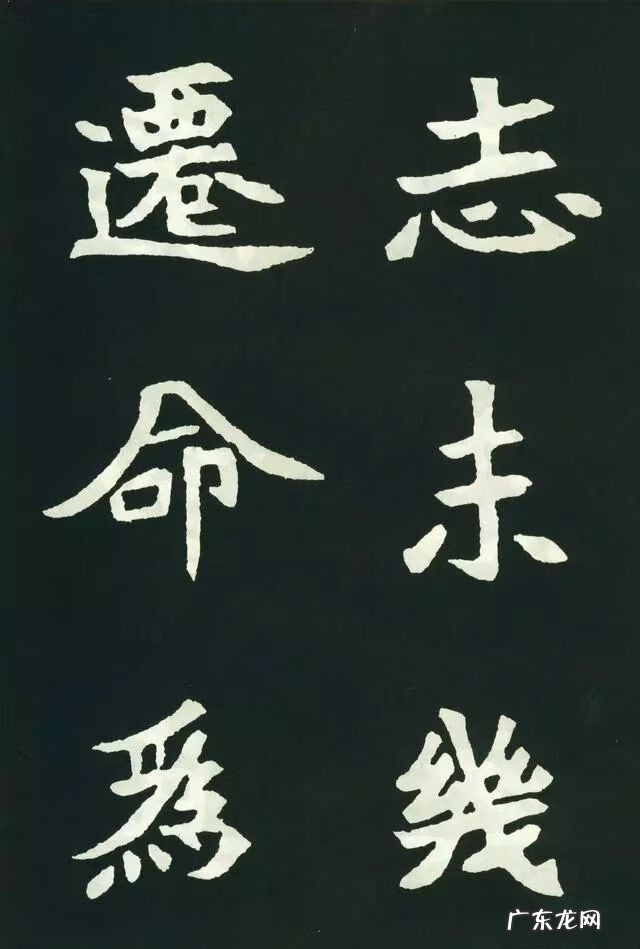 志未幾
遷命為
广东龙网